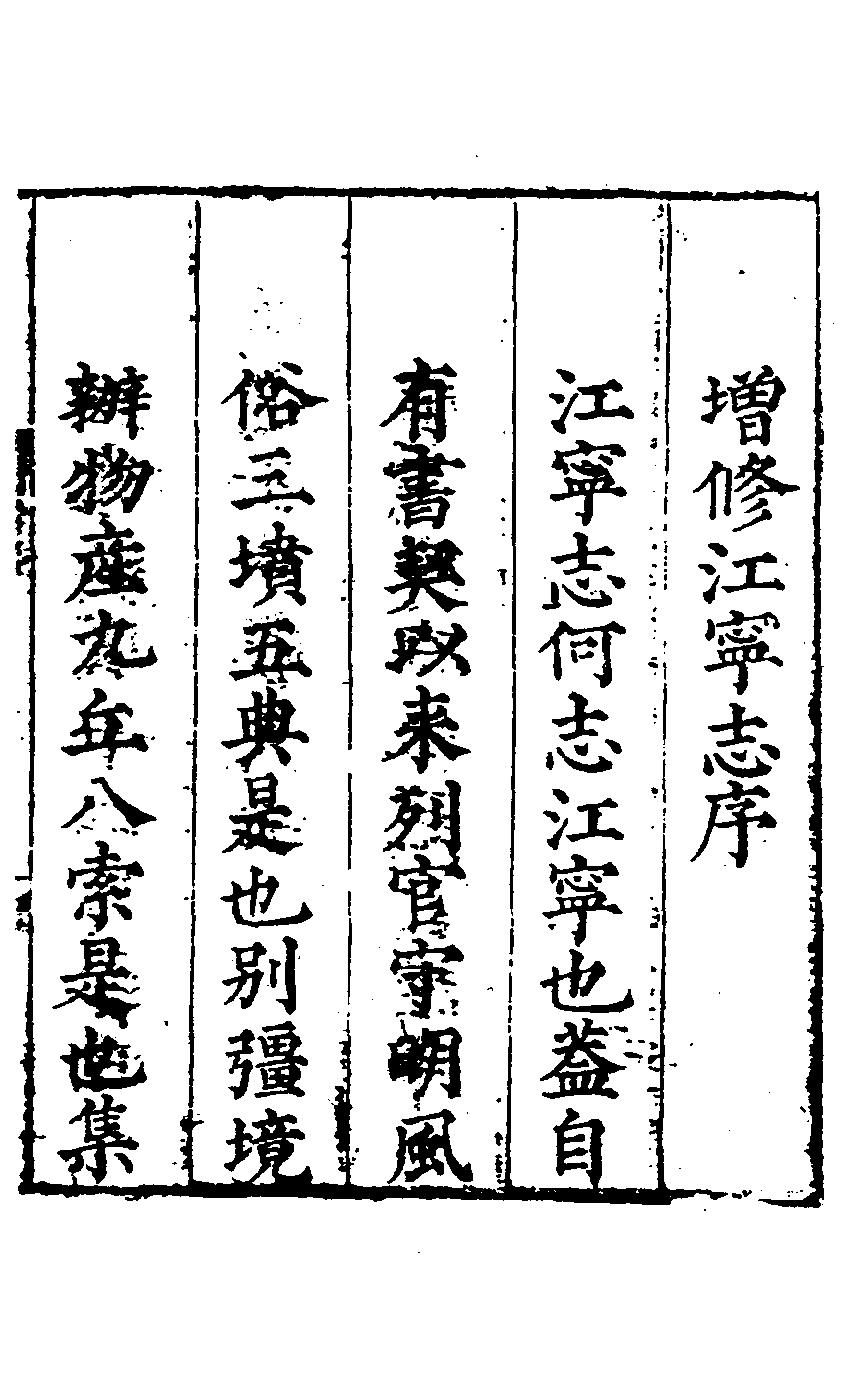 增修江寧志序
江寧志何志江寧也蓋自
有書契以来列官守明風
俗三墳五典是也别彊境
辦物産九丘八索是也集